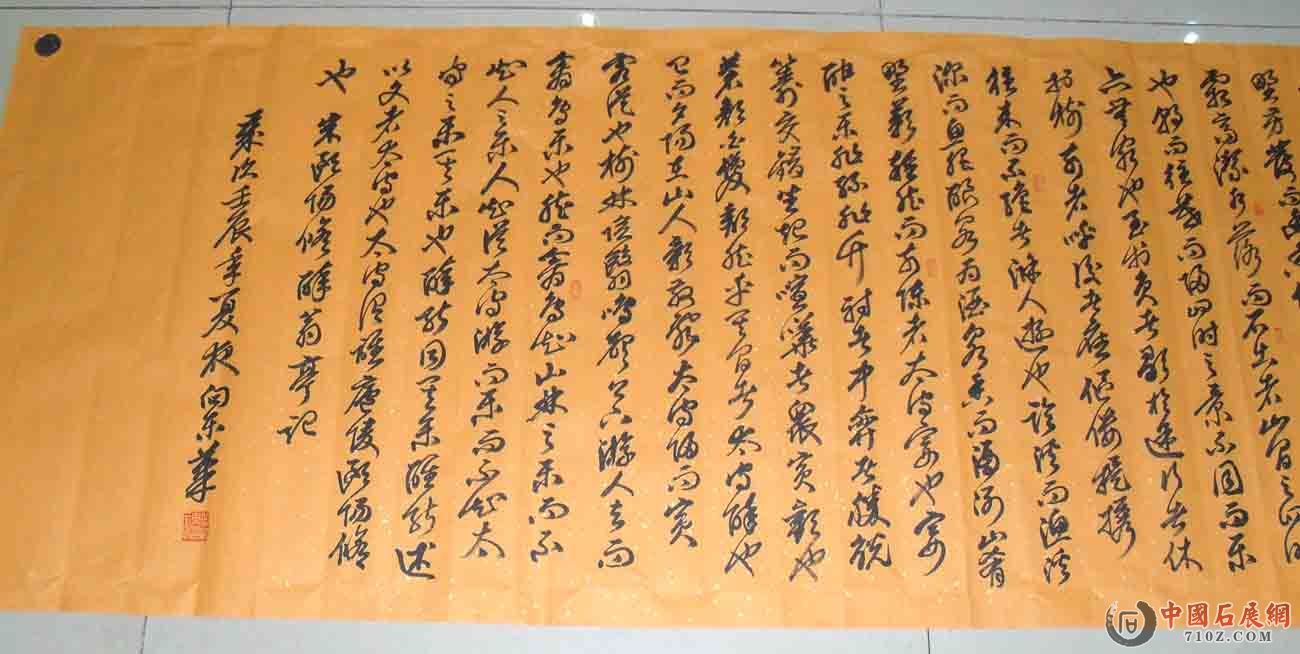 野芳發而幽香
霜高潔水落而石出者山間之四時
也朝而往暮而歸四時之景不同而樂
亦無窮也至於負者歌於途行者休
於樹前者呼後者應傴僂提攜
往來而不絕者滁人遊也臨溪而漁溪
深而魚肥釀泉為酒泉香而酒洌山肴
野蔌雜然而前陳者太守宴也宴
酣之樂非絲非竹射者中弈者勝觥
籌交錯坐起而喧嘩者眾賓歡也
蒼顏白髮頹然乎其間者太守醉也
已而夕陽在山人影散亂太守歸而賓
客從也樹林陰翳鳴聲上下游人去而
禽鳥樂也然而禽鳥知山林之樂而不
知人之樂人知從太守游而樂而不知太
守之樂其樂也醉能同其樂醒能述
以文者太守也太守謂誰廬陵歐陽修
也 宋歐陽修醉翁亭記
歲次壬辰年夏 向 華
中國石展網
710Z.COM